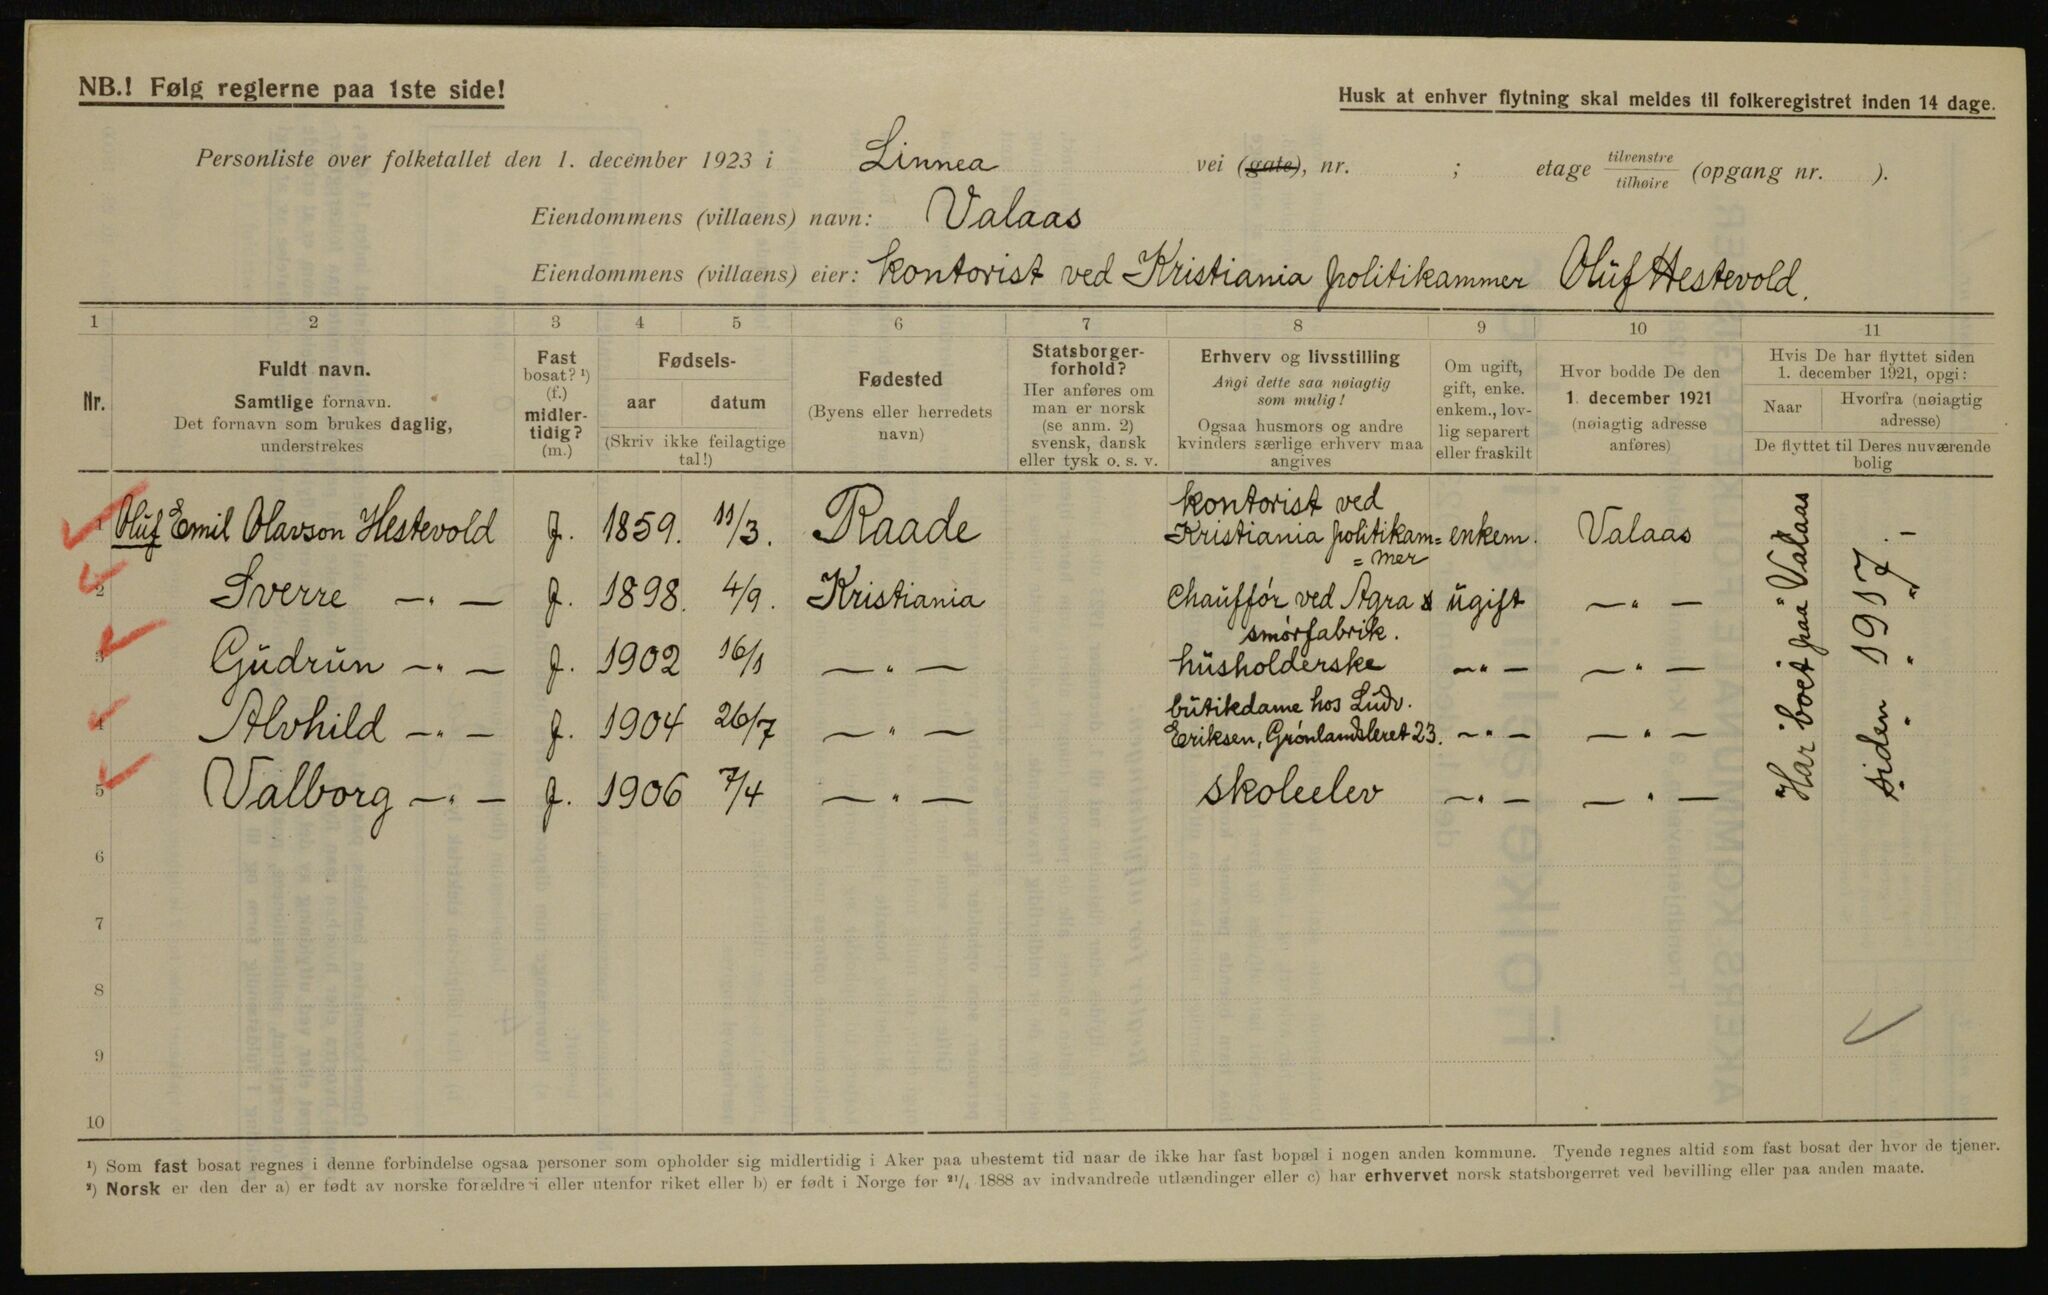 NB.! Følg reglerne paa 1ste side!
Husk at enhver flytning skal meldes til folkeregistret inden 14 dage.
Personliste over folketallet den 1. december 1923 i Linnea vei (gate), nr. ; etage tilvenstre tilhøire (opgang nr. ).
Eiendommens (villaens) navn: Valaas
Eiendommens (villaens) eier: kontorist ved Kristiania politikammer Oluf Hestevold.
1 2 3 4 5 6 7 8 9 10 11
Nr.
Fuldt navn.
Samtlige fornavn.
Det fornavn som brukes daglig,
understrekes
Fast
bosat? ¹)
(f.)
midler-
tidig?
(m.)
Fødsels-
aar datum
(Skriv ikke feilagtige
tal!)
Fødested
(Byens eller herredets
navn)
Statsborger-
forhold?
Her anføres om
man er norsk
(se anm. 2)
svensk, dansk
eller tysk o. s. v.
Erhverv og livsstilling
Angi dette saa nøiagtig
som mulig!
Ogsaa husmors og andre
kvinders særlige erhverv maa
angives
Om ugift,
gift, enke.
enkem., lov-
lig separert
eller fraskilt
Hvor bodde De den
1. december 1921
(nøiagtig adresse
anføres)
Hvis De har flyttet siden
1. december 1921, opgi:
Naar
Hvorfra (nøiagtig
adresse)
De flyttet til Deres nuværende
bolig
1 Oluf Emil Olavson Hestevold f. 1859. 11/3. Raade kontorist ved
Kristiania politikam=
=mer enkem. Valaas
2 Sverre —"— f. 1898. 4/9. Kristiania Chauffør ved Agra
smørfabrik. ugift —"—
3 Gudrun —"— f. 1902 16/1 —"— husholderske —"— —"—
4 Alvhild —"— f. 1904 26/7 —"— butikdame hos Ludv.
Eriksen, Grønlandsleret 23. —"— —"—
5 Valborg —"— f. 1906 7/4 —"— skoleelev —"— —"—
Har boet paa "Valaas
siden 1917.
" " "
6
7
8
9
10
¹) Som fast bosat regnes i denne forbindelse ogsaa personer som opholder sig midlertidig i Aker paa ubestemt tid naar de ikke har fast bopæl i nogen anden kommune. Tyende regnes altid som fast bosat der hvor de tjener.
²) Norsk er den der a) er født av norske forældre i eller utenfor riket eller b) er født i Norge før ²¹/₄ 1888 av indvandrede utlændinger eller c) har erhvervet norsk statsborgerret ved bevilling eller paa anden maate.